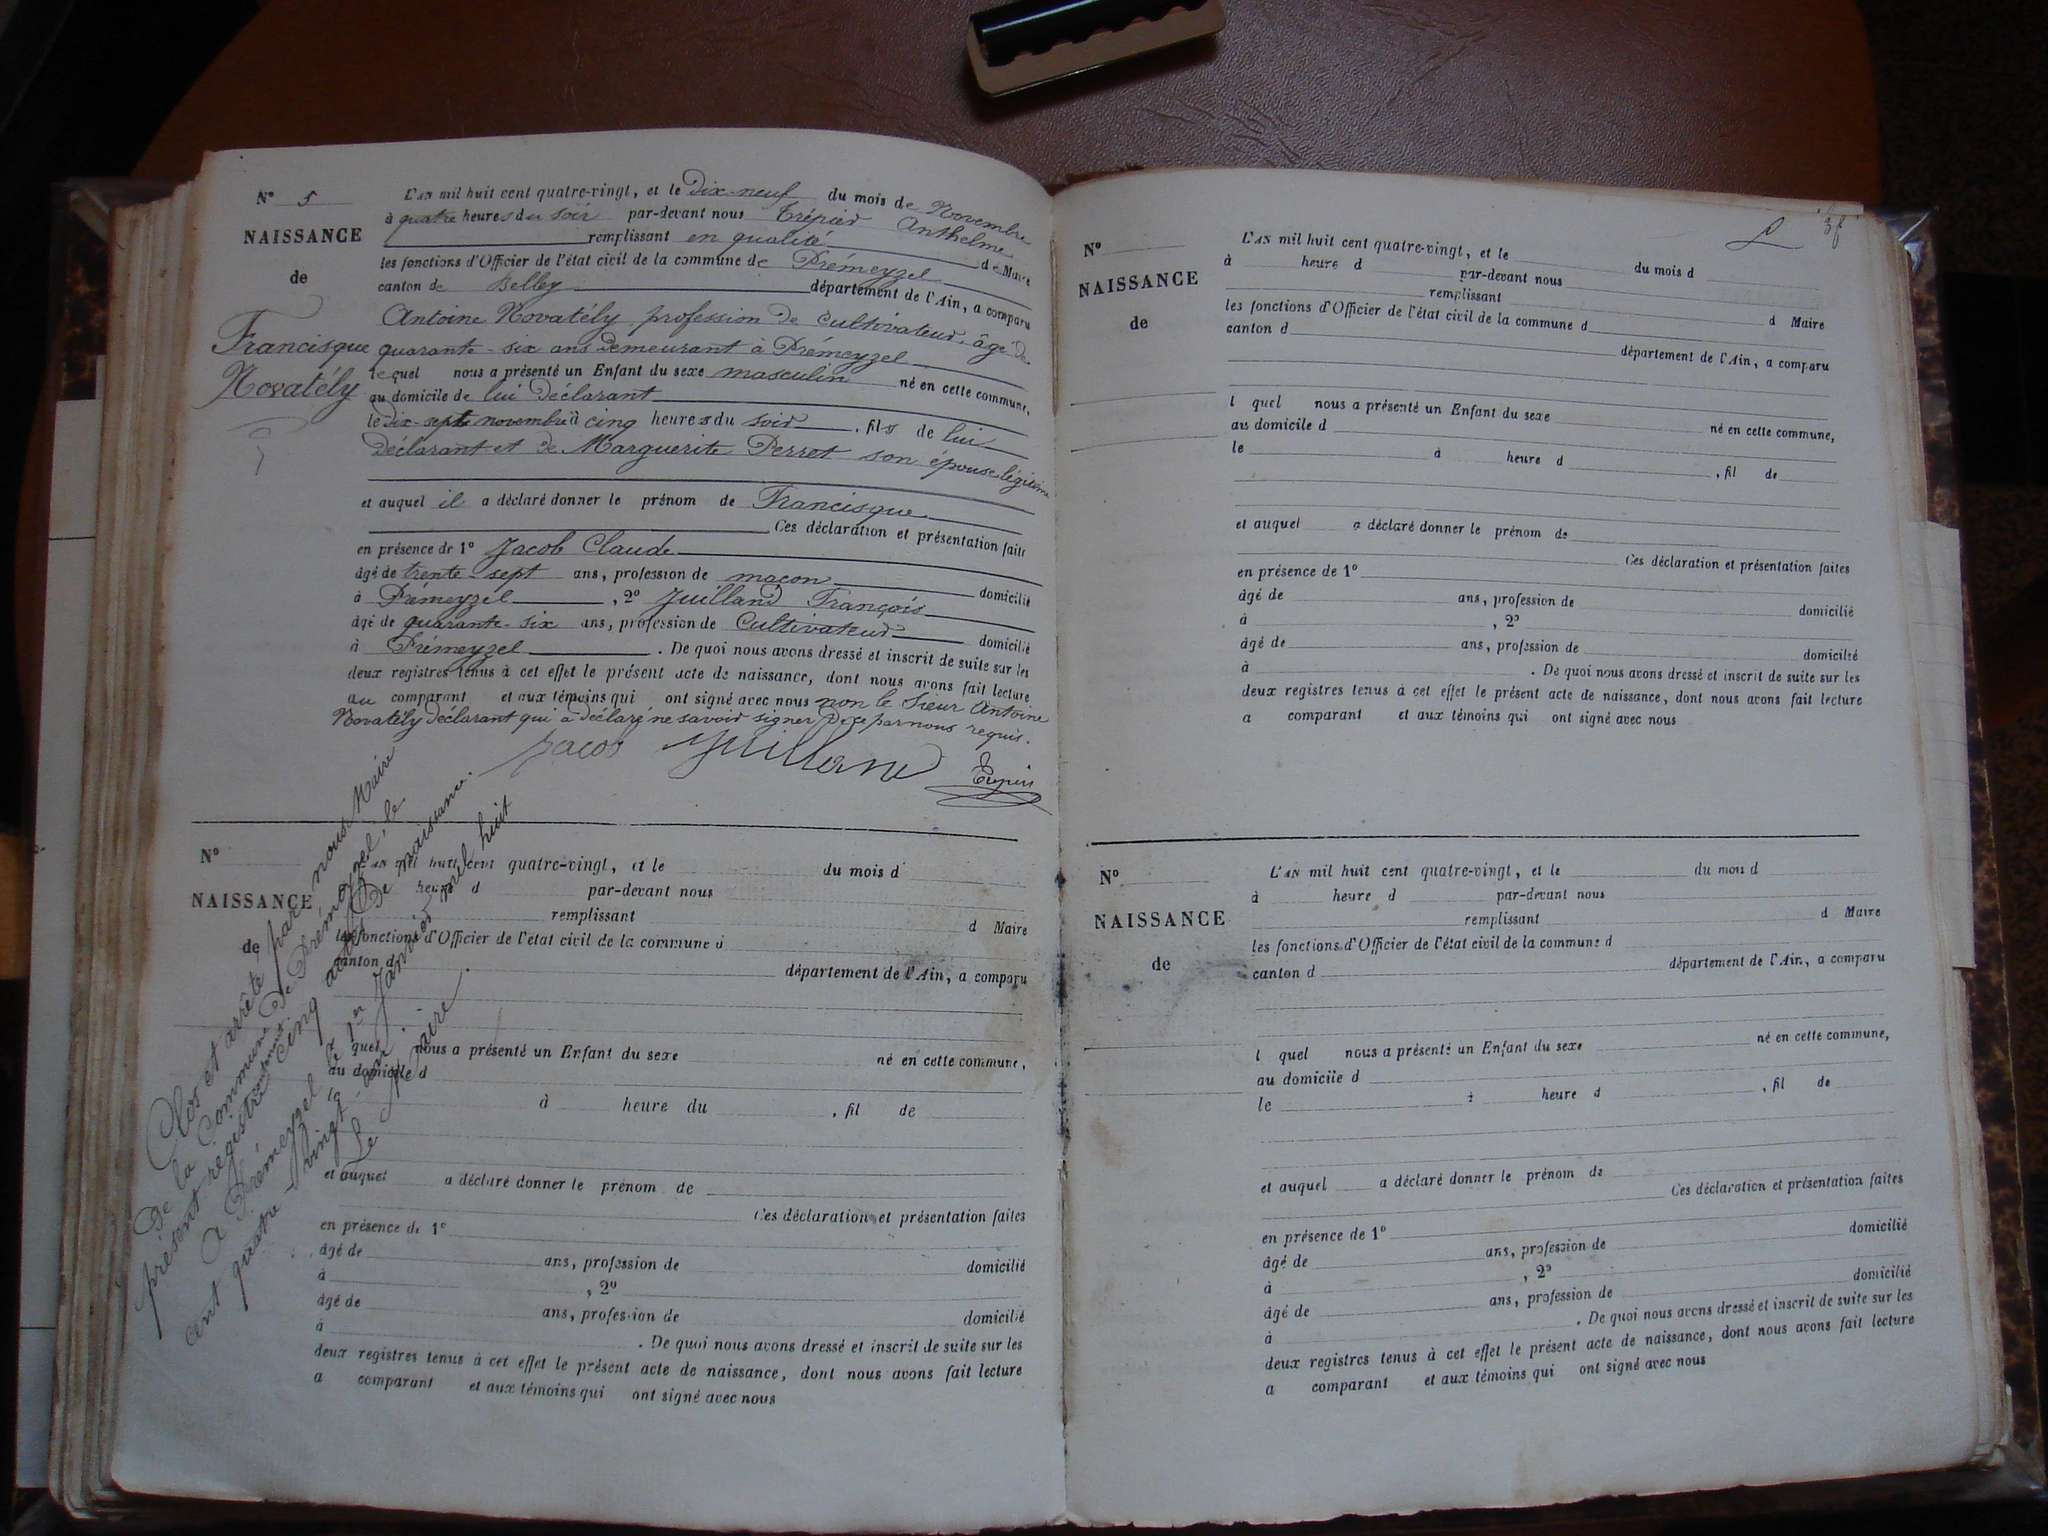 N° 5
NAISSANCE
de
Francisque
Novatély
L'AN mil huit cent quatre-vingt, et le Dix-neuf du mois de Novembre
à quatre heures du soir par-devant nous Trépier Anthelme
remplissant en qualité de Maire
les fonctions d'Officier de l'état civil de la commune de Prémeyzel
canton de Belley département de l'Ain, a comparu
Antoine Novatély profession de Cultivateur, âgé de
quarante-six ans demeurant à Prémeyzel
lequel nous a présenté un Enfant du sexe masculin né en cette commune,
au domicile de lui Déclarant
le Dix-sept novembre à cinq heures du soir, fils de lui
Déclarant et de Marguerite Perret son épouse légitime
et auquel il a déclaré donner le prénom de Francisque
Ces déclaration et présentation faite
en présence de 1° Jacob Claude
âgé de trente-sept ans, profession de maçon domicilié
à Prémeyzel, 2° Juilland François
âgé de quarante-six ans, profession de Cultivateur domicilié
à Prémeyzel. De quoi nous avons dressé et inscrit de suite sur les
deux registres tenus à cet effet le présent acte de naissance, dont nous avons fait lecture
au comparant et aux témoins qui ont signé avec nous non le Sieur Antoine
Novatély déclarant qui a déclaré ne savoir signer de ce par nous requis.
Jacob Juilland Trépier
Clos et arrêté par nous Maire
de la Commune de Prémeyzel, le
présent registre contenant cinq actes de naissance.
A Prémeyzel le 1er Janvier mil huit
cent quatre-vingt-un.
Le Maire.
N°
NAISSANCE
de
L'AN mil huit cent quatre-vingt, et le du mois d
heure d par-devant nous
remplissant d Maire
les fonctions d'Officier de l'état civil de la commune d
canton d département de l'Ain, a comparu
l quel nous a présenté un Enfant du sexe né en cette commune,
au domicile d
à heure du , fil de
et auquel a déclaré donner le prénom de
Ces déclaration et présentation faites
en présence de 1°
âgé de ans, profession de domicilié
à , 2°
âgé de ans, profession de domicilié
à . De quoi nous avons dressé et inscrit de suite sur les
deux registres tenus à cet effet le présent acte de naissance, dont nous avons fait lecture
a comparant et aux témoins qui ont signé avec nous
N°
NAISSANCE
de
L'AN mil huit cent quatre-vingt, et le du mois d
à heure d par-devant nous
remplissant d Maire
les fonctions d'Officier de l'état civil de la commune d
canton d département de l'Ain, a comparu
l quel nous a présenté un Enfant du sexe né en cette commune,
au domicile d
le à heure d , fil de
et auquel a déclaré donner le prénom de
Ces déclaration et présentation faites
en présence de 1°
âgé de ans, profession de domicilié
à , 2°
âgé de ans, profession de domicilié
à . De quoi nous avons dressé et inscrit de suite sur les
deux registres tenus à cet effet le présent acte de naissance, dont nous avons fait lecture
a comparant et aux témoins qui ont signé avec nous
N°
NAISSANCE
de
L'AN mil huit cent quatre-vingt, et le du mois d
à heure d par-devant nous
remplissant d Maire
les fonctions d'Officier de l'état civil de la commune d
canton d département de l'Ain, a comparu
l quel nous a présenté un Enfant du sexe né en cette commune,
au domicile d
le à heure d , fil de
et auquel a déclaré donner le prénom de
Ces déclaration et présentation faites
en présence de 1°
âgé de ans, profession de domicilié
à , 2°
âgé de ans, profession de domicilié
à . De quoi nous avons dressé et inscrit de suite sur les
deux registres tenus à cet effet le présent acte de naissance, dont nous avons fait lecture
a comparant et aux témoins qui ont signé avec nous